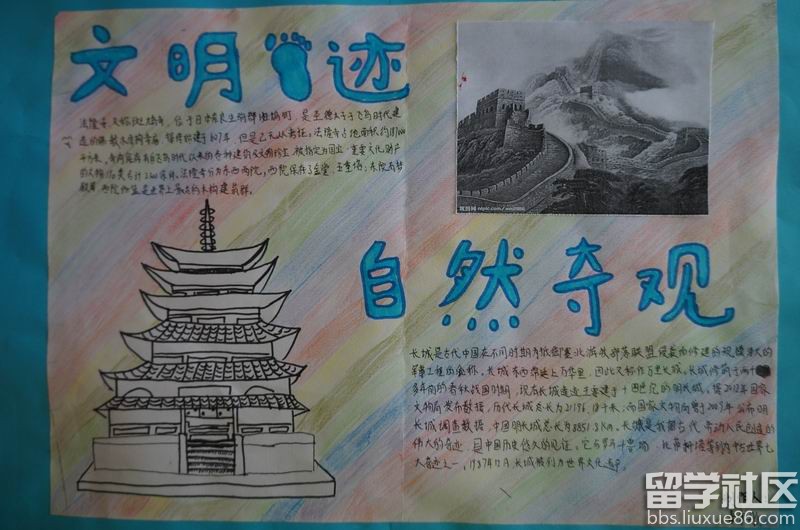 文明 迹
法隆寺,又称斑鸠寺,位于日本奈良生驹郡斑鸠町,是圣德太子于飞鸟时代建
造的佛教木结构寺庙,据传始建于607年,但是已无从考证。法隆寺占地面积约187000
平方米,寺内保存有自飞鸟时代以来的各种建筑及文物珍宝,被指定为国宝、重要文化财产
的文物 类 计2300余件。法隆寺分为东西两院,西院保存了金堂、五重塔;东院有梦
殿 西院伽蓝是世界上最古的木构建筑群。
昵图网 nipic.com
自然奇观
长城是古代中国在不同时期为抵御塞北游牧部落联盟侵袭而修建的规模浩大的
军事工程的统称。长城东西绵延上万华里,因此又称作万里长城。长城修筑于两千
多年前的春秋战国时期,现存长城遗迹主要建于十四世纪的明长城。据2012年国家
文物局发布数据,历代长城总长为21196.18千米;而国家文物局曾于2009年公布明
长城调查数据,中国明长城总长为8851.8Km。长城是我国古代劳动人民创造的
伟大的奇迹,是中国历史悠久的见证。它与罗马斗兽场、比萨斜塔等列为中古世界七
大奇迹之一,1987年12月长城被列为世界文化遗产。
留学社区
bbs.liuxue86.com